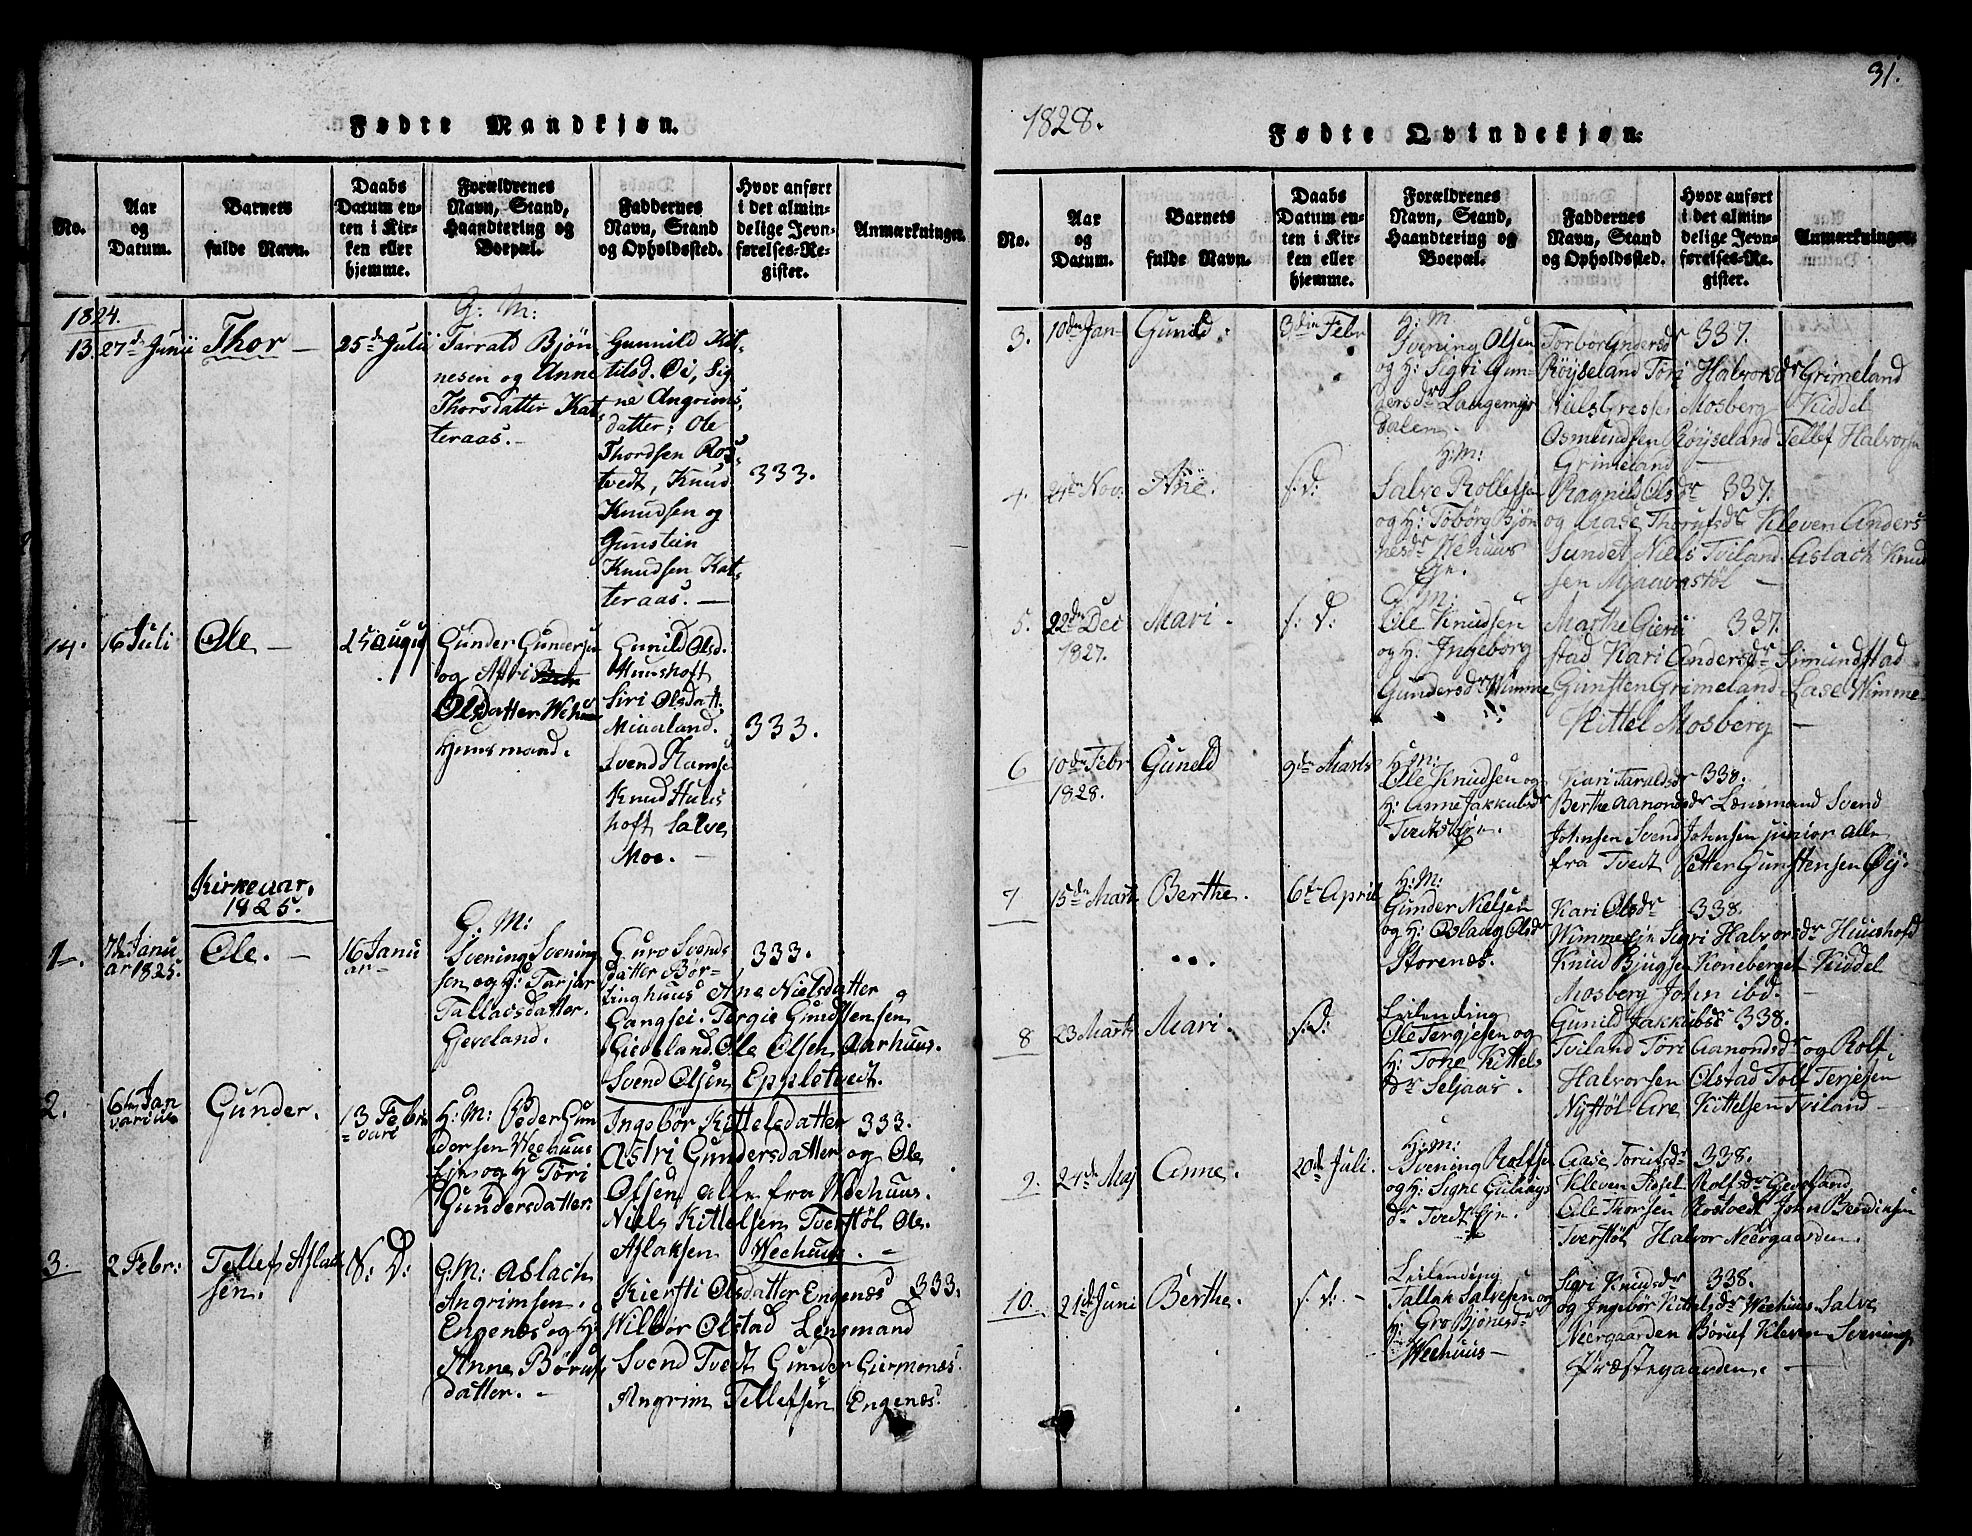 Fødte Mandkjøn.
No.
Aar
og
Datum.
Barnets
fulde Navn.
Daabs
Datum en-
ten i Kir-
ken eller
hjemme.
Forældrenes
Navn, Stand,
Haandtering og
Boepæl.
Faddernes
Navn, Stand
og Opholdssted.
Hvor anført
i det almin-
delige Jevn-
førelses-Re-
gister.
Anmærkninger.
1824.
13. 27de Junii
Thor —
25de Julii
G: M:
Tarrald Bjøn-
nesen og Anne
Thorsdatter Kat-
teraas. —
Gunnild Ket-
tilsd. Øi, Sig-
ne Angrims-
datter, Ole
Thordsen Ros-
tvedt, Knud
Knudsen og
Gunstein
Knudsen Kat-
teraas. —
333.
14. 16 Juli
Ole. —
25 August
Gunder Gundersen
og Astri
Olsdatter Wehuus
Huusmand.
Gunild Olsd.
Huushoft
Siri Olsdatt.
Miaaland.
Svend
Knud Huus
hoft Salve
Moe. —
333.
Kirkeaar.
1825.
1. 7de Janu
ar 1825.
Ole. —
16 Janu
ar—
G: M:
Svening Svening
sen og H: Tarjer
Tallacsdatter.
Gjeveland.
Guro Svends
datter Bør-
tinghuus Ane Nielsdatter
Gangsei. Tergie Gundstensen
Gieveland. Ole Olsen Aarhuus.
Svend Olsen Eppletvedt.
333.
2. 6te Jan
varius
Gunder.
13 Febr
vari
H: M: Peder Gun
dersen Weehuus
Eje og H Tøri
Gundersdatter.
Ingebør Kittelsdatter 333.
Astri Gundersdatter og Ole
Olsen alle fra Weehuus.
Niels Kittelsen Tverstøl Ole.
Aslaksen Weehuus. —
3. 2 Febr:
Tellef Aslach
sen.
S: D:
G: M: Aslach
Angrimsen.
Engenæs og H:
Anne Børufs
datter. —
Kiersti Olsdatter Engenæs 333.
Wilbør Olstad Lensmand
Svend Tvedt Gunder Giermenæs.
Angrim Tellefsen Engenæs
31.
1828.
Fødte Qvindekjøn.
No.
Aar
og
Datum.
Barnets
fulde Navn.
Daabs
Datum en-
ten i Kir-
ken eller
hjemme.
Forældrenes
Navn, Stand,
Haandtering og
Boepæl.
Faddernes
Navn, Stand
og Opholdssted.
Hvor anført
i det almin-
delige Jevn-
førelses-Re-
gister.
Anmærkninger.
3. 10de Jan
Gunild.
3die Febr
H: M.
Svening Olsen
og H: Sigri Gun-
dersdr Langemyr
dalen.
Torbor Andersdr 337.
Røyseland Tøri Halvorsdr Grimeland
Niels Mosberg Kiddel
Osmundsen Røyseland Tellef Halvorsen
Grimeland —
4. 24de Nov.
Ane.
s: D:
H: M:
Salve Rollefsen
og H: Tobørg Bjøn
nesdr Wehuus
Eje.
Ragnild Olsdr 337.
og Aase Thorufsdr Kleven Anders
Sundet Niels Tviland Aslach Knud
sen Mjaavastøl —
5. 22de Dec
1827.
Mari.
s: D:
G: M:
Ole Knudsen
og H: Ingeborg
Gundersdr Wimme
Marthe Gieru 337.
stad Kari Andersdr Simundstad
Gunsten Grimeland Lase Wimme
Kittel Mosberg —
6 10de Febr
1828.
Guneld
9de Marts
H: M:
Ole Knudsen og
H: Anne Jakkubsdr
Tvedts Eje.
Kari Taraldsdr 338.
Berthe Aanondsdr Lænsmand Svend
Johnsen Svend Johnsen junior alle
fra Tvedt Petter Gunstensen Øij.
7 15de Marts
Berthe.
6te April
H: M:
Gunder Nielsen
og H: Aslaug Olsdr
Storenæs.
Kari Olsdr 338.
Wimme Eje Sigri Halvorsdr Huushoft
Knud Bjugsen Koneberget Kiddel
Mosberg John ibd. —
8 23 Marts
Mari.
s: D:
Leilending
Ole Tergjesen og
H: Tone Kittels
dr Seljaas.
Gunild Jakkubsdr 338.
Tviland Tøri Aanondsdr og Rolf
Halvorsen Olstad Tolf Terjesen
Nystøl Are Kittelsen Tviland —
9. 24de Maj
Anne.
20de Juli.
H: M:
Svening Rolfsen
og H: Signe
dr Tvedt Eje.
Aase Torufsdr 338.
Kleven Aasel Rolfsdr Gieveland
Ole Thorsen Rostvedt John Berdinsen
Tverstøl Halvor Neergaarden.
10. 21de Juni
Berthe.
s: D: —
Leilending
Tallak Salvesen og
H: Gro Bjønesdr
Weehuus —
Sigri Knudsdr 338.
og Ingebør Kittelsdr Weehuus Salve
Neergaarden Børuf Kleven Svening
Præstegaarden. —